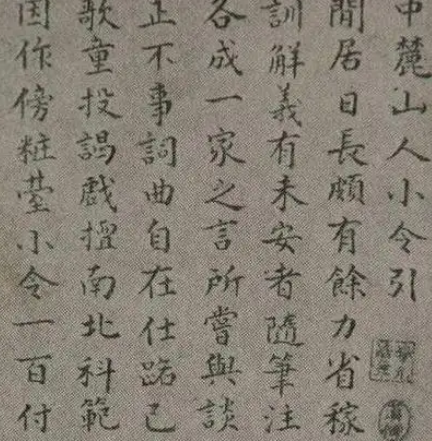 中麓山人小令引
閒居日長頗有餘力省稼
訓解義有未安者隨筆注
各成一家之言所嘗與談
正不事詞曲自在仕路已
歌童投謁戲擅南北科範
因作傍粧臺小令一百付